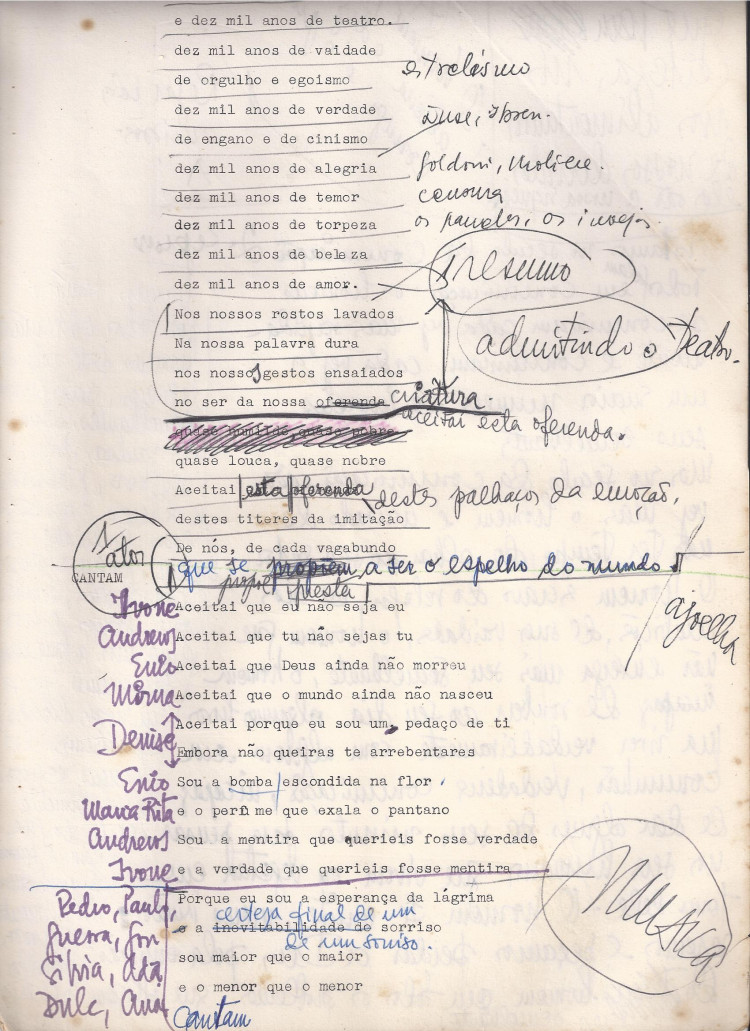 e dez mil anos de teatro.
dez mil anos de vaidade
de orgulho e egoismo estrelismo
dez mil anos de verdade Duse, Ibsen.
de engano e de cinismo
dez mil anos de alegria Goldoni, Moliere.
dez mil anos de temor censura
dez mil anos de torpeza os
dez mil anos de beleza
dez mil anos de amor. resumo
Nos nossos rostos lavados
Na nossa palavra dura admitindo o Teatro.
nos nossos gestos ensaiados
no ser da nossa oferenda criatura
aceitai esta oferenda.
quase humilde quase pobre
quase louca, quase nobre
Aceitai esta oferenda destes palhaços da emoção,
destes titeres da imitação
1 ator De nós, de cada vagabundo
CANTAM que se propõem a ser o espelho do mundo
presta
Ivone Aceitai que eu não seja eu ajoelha
Andrews Aceitai que tu não sejas tu
Enio Aceitai que Deus ainda não morreu
Mirna Aceitai que o mundo ainda não nasceu
Denise Aceitai porque eu sou um pedaço de ti
Embora não queiras te arrebentares
Enio Sou a bomba escondida na flor.
Maria Rita e o perfume que exala o pantano
Andrews Sou a mentira que querieis fosse verdade
Ivone e a verdade que querieis fosse mentira Musica
Pedro, Paulo, Porque eu sou a esperança da lágrima
certeza final de um
Guerra, e a inevitabilidade de sorriso
de um sorriso.
Silvia, sou maior que o maior
Dulc, Ana e o menor que o menor
Cantam